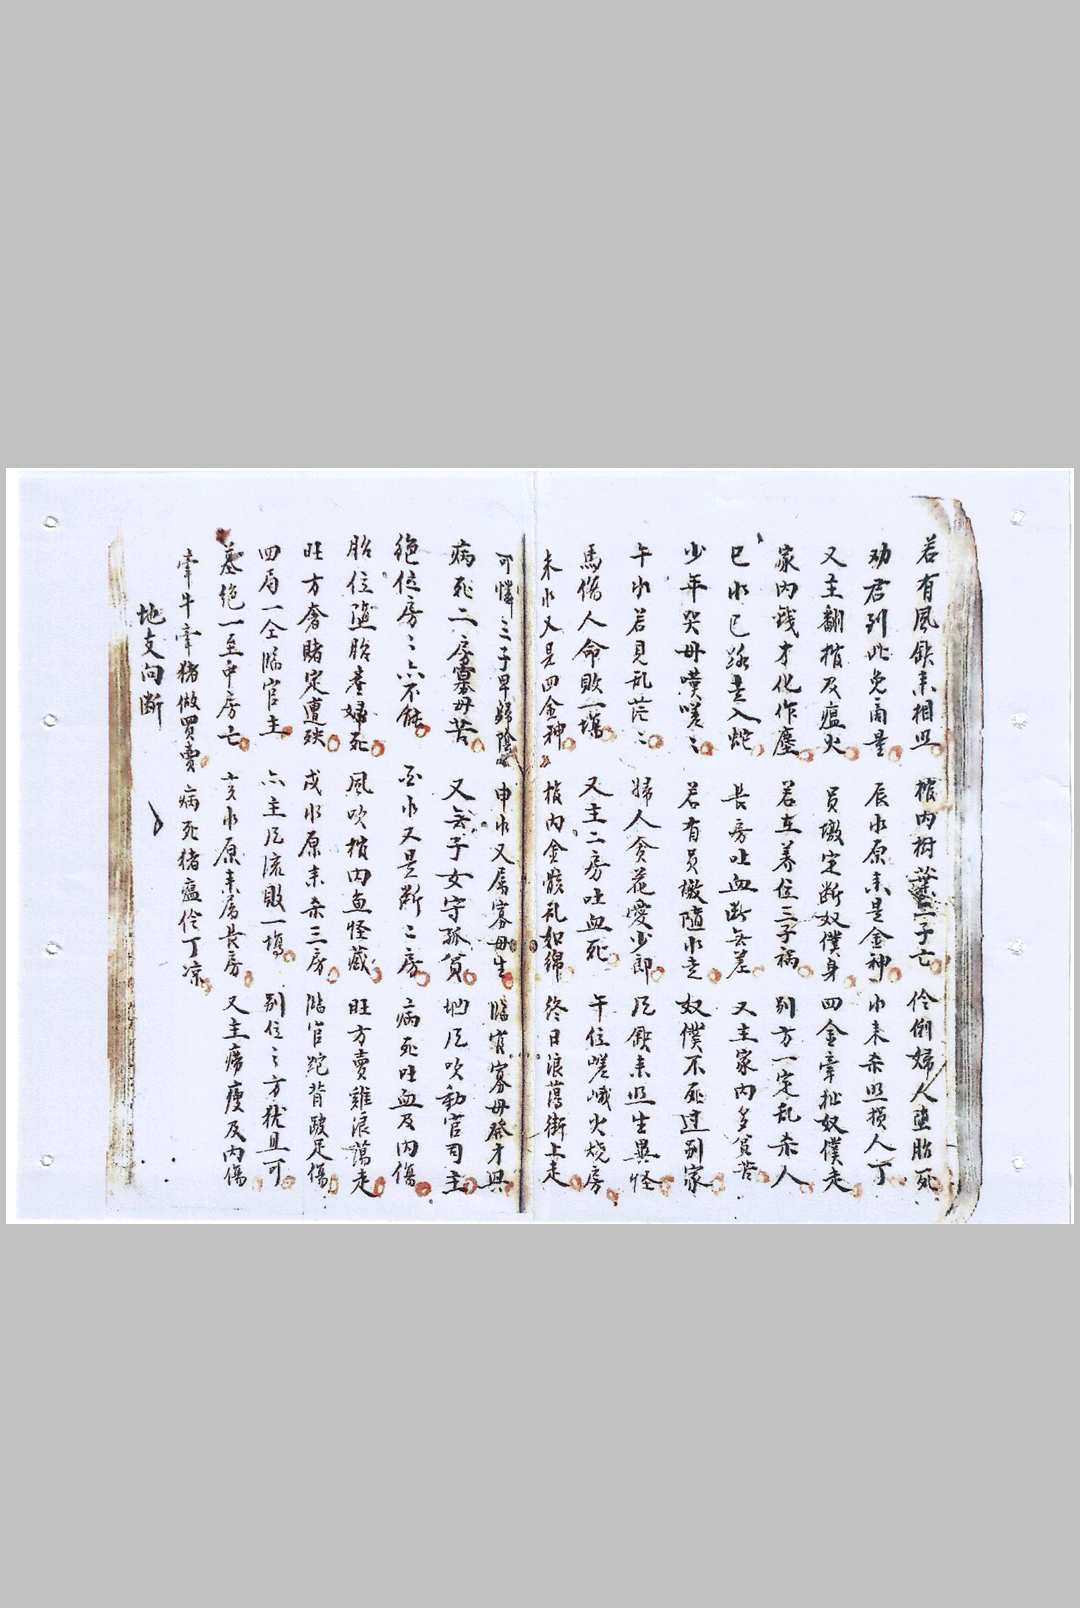 若有風缺来相照 棺内樹葉三子亡 伶俐婦人墮胎死
劝君到此免商量 辰水原来是金神 水来杀照损人丁
又主翻棺及瘟火 员墩定断奴僕身 四金牵扯奴僕走
家内钱才化作塵 若在养位三子祸 别方一定乱杀人
巳水已 走入蛇 長房吐血断無差 又主家内多貧苦
少年哭母嘆嗟〻 若有员墩随水走 奴僕不死过别家
午水若見乱茫〻 婦人贪花愛少郎 凹缺来照生異怪
馬傷人命敗一塲 又主二房吐血死 午位嵯峨火烧房
未水又是四金神 棺内金骸乱如绵 终日浪蕩街上走
可憐三子早歸陰 申水又属寡母生 臨官寡母發才興
病死二房寡母苦 又無子女守孤貧 地凹吹動官司主
绝位房〻六不能 酉水又是断二房 病死吐血及内傷
胎位墮胎産婦死 風吹棺内魚怪藏 旺方賣雞浪蕩走
旺方奢賭定遭殃 戌水原来杀三房 臨官跎背跛足傷
四局一仝臨官主 六主凹流敗一塲 别位之方犹且可
墓绝一至中房亡 亥水原来属長房 又主痨瘦及内傷
牵牛牵猪做買賣 病死猪瘟伶丁凉
地支向断